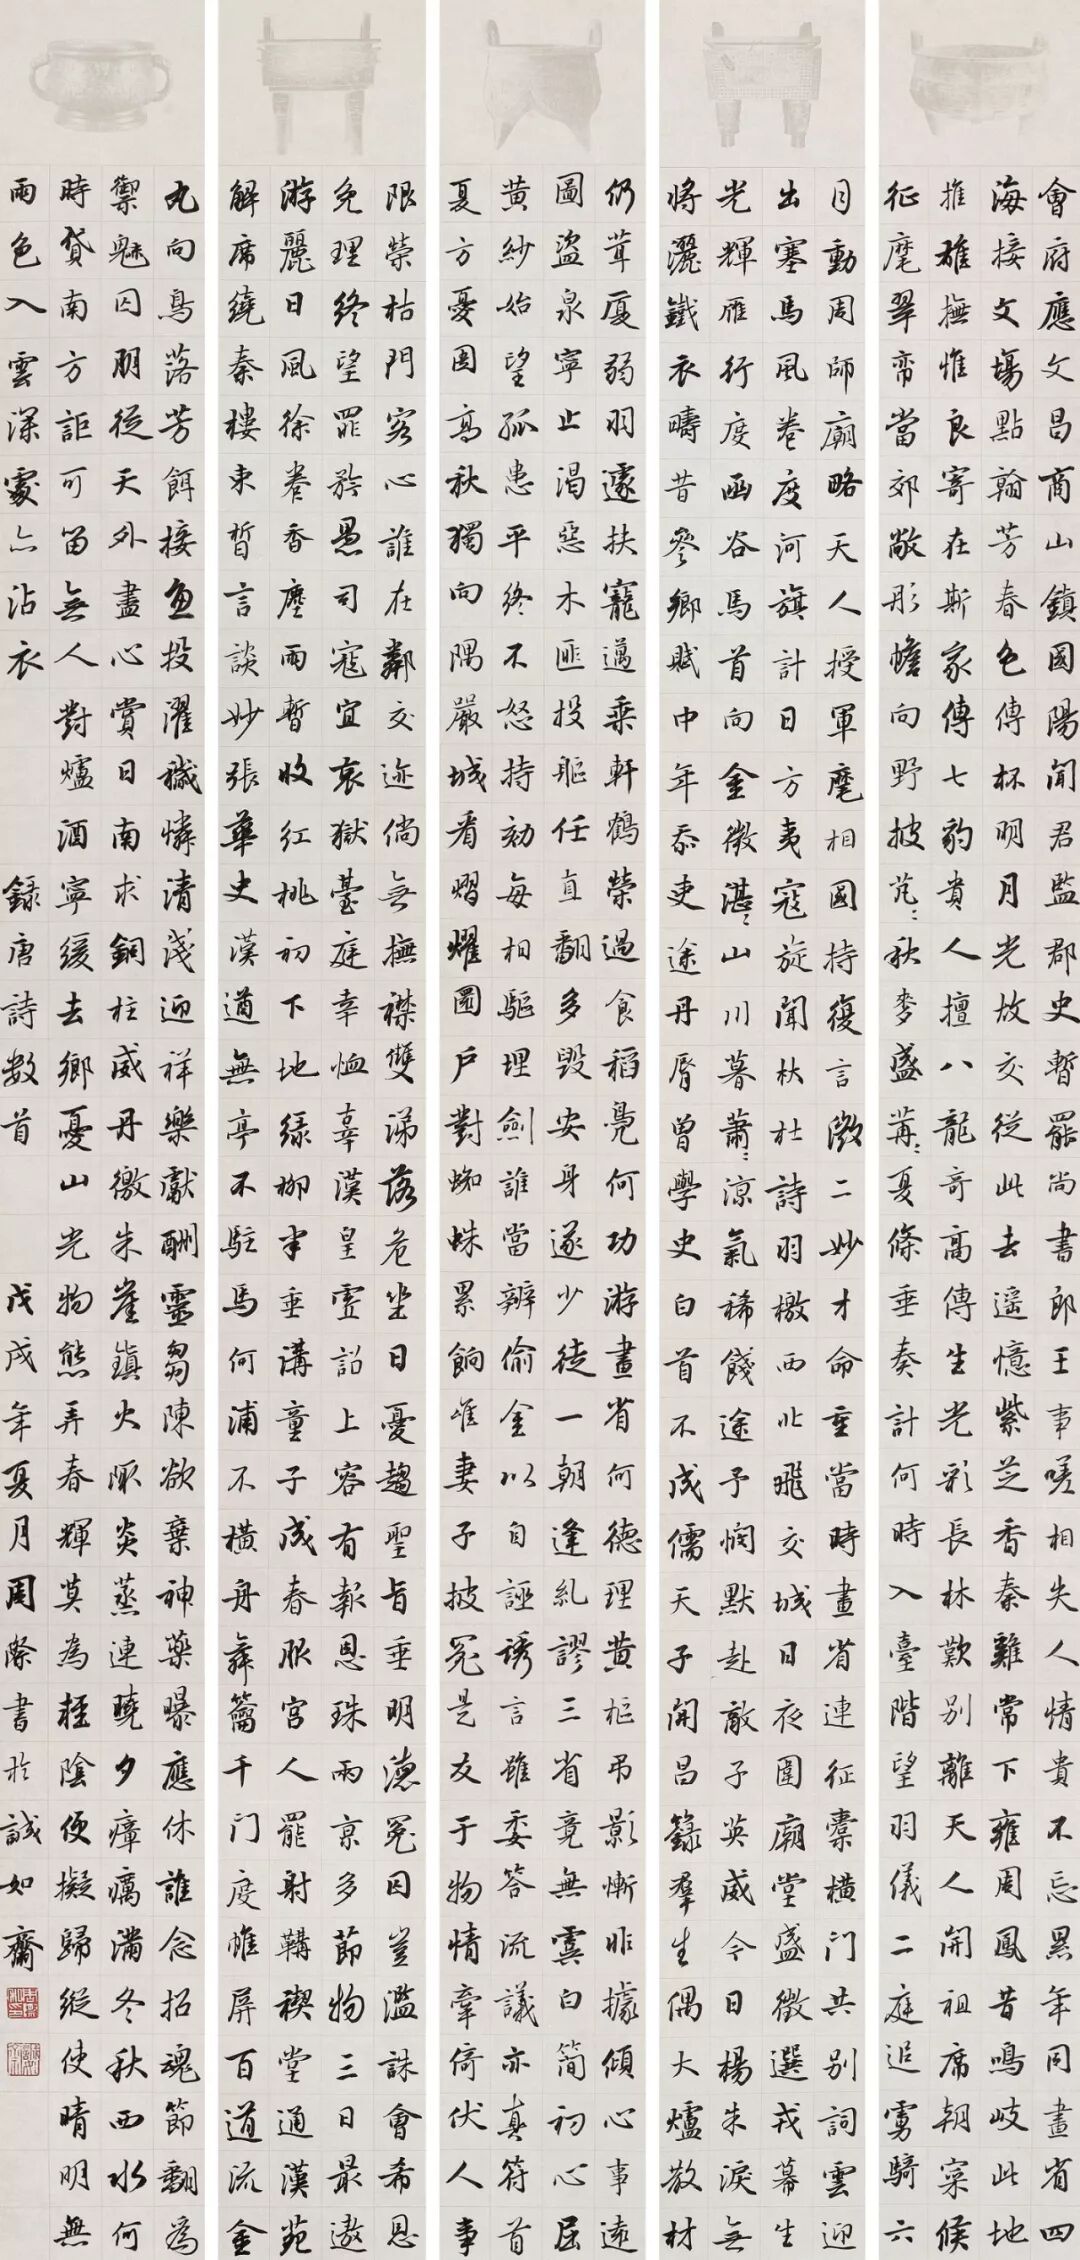 會府應文昌商山鎮國陽聞君監郡史暫罷尚書郎王事嗟相失人情貴不忘累年同畫省四
海接文場點翰芳春色傳杯明月光故交從此去遥憶紫芝香秦雞常下雍周鳳昔鳴岐此地
推雄撫惟良寄在斯家傳七豹貴人擅八龍奇高傳生光彩長林歎別離天人開祖席朝寀候
征麾翠帟當郊敞彤幨向野披芃〻秋麥盛苒〻夏條垂奏計何時入臺階望羽儀二庭追虜騎六
月動周師廟略天人授軍麾相國持復言激二妙才命重當時畫省連征橐橫门共別詞雲迎
出塞馬風卷度河旗計日方夷寇旋聞杕杜詩羽檄西北飛交城日夜圍廟堂盛徵選戎幕生
光輝雁行度函谷馬首向金微湛〻山川暮蕭〻涼氣稀餞途予憫默赴敵子英威今日楊朱淚無
將灑鐵衣疇昔參鄉賦中年忝吏途丹脣曾學史白首不成儒天子開昌籙羣生偶大爐散材
仍葺廈弱羽遽扶寵邁乘軒鶴榮過食稻鳧何功游畫省何德理黃柩弔影慚非據傾心事遠
圖盜泉寧止渴惡木匪投軀任直翻多毀安身遂少徒一朝逢糺謬三省竟無虞白簡初心屈
黃紗始望孤患平終不怒持劾每相驅埋劍誰當辨偷金以自誣誘言雖委答流議亦真符首
夏方憂圄高秋獨向隅嚴城看熠燿圜戶對蜘蛛累餉唯妻子披冤是友于物情牽倚伏人事
限榮枯門客心誰在鄰交迹倘無撫襟雙涕落危坐日憂趨聖旨垂明德冤囚豈濫誅會希恩
免理終望罪矜愚司寇宜哀獄臺庭幸恤辜漢皇虛詔上容有報恩珠兩京多節物三日最遨
游麗日風徐卷香塵雨暫收紅桃初下地綠柳半垂溝童子成春服宮人罷射鞲禊堂通漢苑
解席繞秦樓束皙言談妙張華史漢遒無亭不駐馬何浦不橫舟舞籥千门度帷屏百道流金
丸向鳥落芳餌接魚投濯穢憐清淺迎祥樂獻酬靈芻陳欲棄神藥曝應休誰念招魂節翻為
禦魅囚朋從天外盡心賞日南求銅柱威丹徼朱崖鎮火陬炎蒸連曉夕瘴癘滿冬秋西水何
時貸南方詎可留無人對爐酒寧緩去鄉憂山光物態弄春輝莫為輕陰便擬歸縱使晴明無
雨色入雲深處亦沾衣
錄唐詩數首
戊戌年夏月周際書於誠如齋